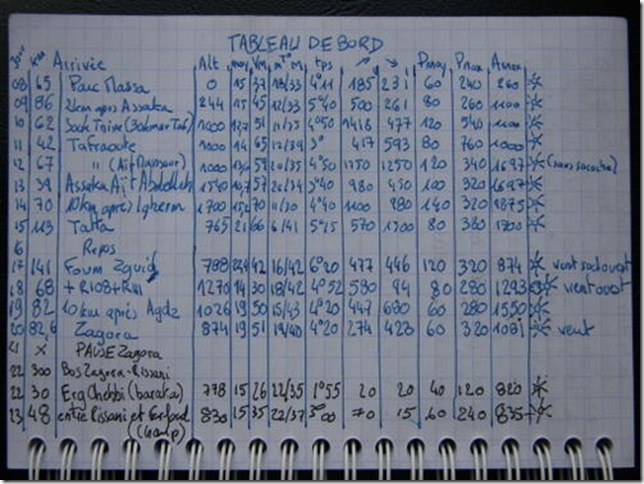 TABLEAU DE BORD
KM Arrivée Alt moy Vm m T° M tps ↗ ↘ Pmoy Pmax Amax
08 65 Parc Massa 0 15 37 18/33 4°11 185 231 60 240 260
09 86 2km après Assaka 244 15 45 12/33 5°40 500 261 80 260 1100
10 62 1000 12,7 51 11/35 4°50 1418 477 120 540 1100
11 42 Tafraoute 1000 14 65 12/39 3° 417 593 80 760 1000
12 67 " (Aït Mansour) 1000 13,6 59 20/35 4°50 1250 1250 120 340 1697 (sans sacoche)
13 39 Assaka Aït Abdallah 1540 10,7 57 26/34 3°40 980 450 100 320 1697
14 70 10km après Igherm 1700 15,2 70 11/30 4°40 1100 980 140 320 1875
15 113 Tatta 765 21 66 6/41 5°15 570 1300 80 380 1800
16 Repos
17 141 Foum Zguid 788 22,4 42 16/42 6°20 477 446 120 320 874 vent sud ouest
18 68 + R108 + R111 1270 14 30 18/42 4°52 580 94 80 280 1293 vent ouest
19 82 10km après Agdz 1026 19 50 15/43 4°20 447 680 60 280 1550
20 82,6 Zagora 874 19 51 19/40 4°20 274 423 60 320 1081 vent
21 x PAUSE Zagora
22 300 Bus Zagora-Rissani
22 30 Erg Chebbi (baraka) 778 15 26 22/35 1°55 20 20 40 120 820
23 48 entre Rissani et Erfoud 830 15 35 22/37 3°00 70 15 60 240 835
(Camp)